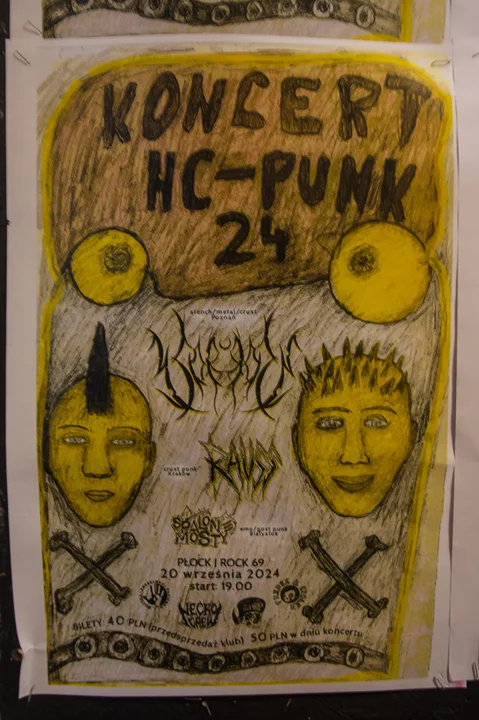 KONCERT
HC-PUNK
24
stench/metal/crust
Poznań
crust punk
Kraków
RAUSS
SPALONE
MOSTY
emo/post punk
Białystok
PŁOCK | ROCK 69
20 września 2024
start: 19.00
NECRO
CREW
BILETY: 40 PLN (przedsprzedaż klub) 50 PLN w dniu koncertu